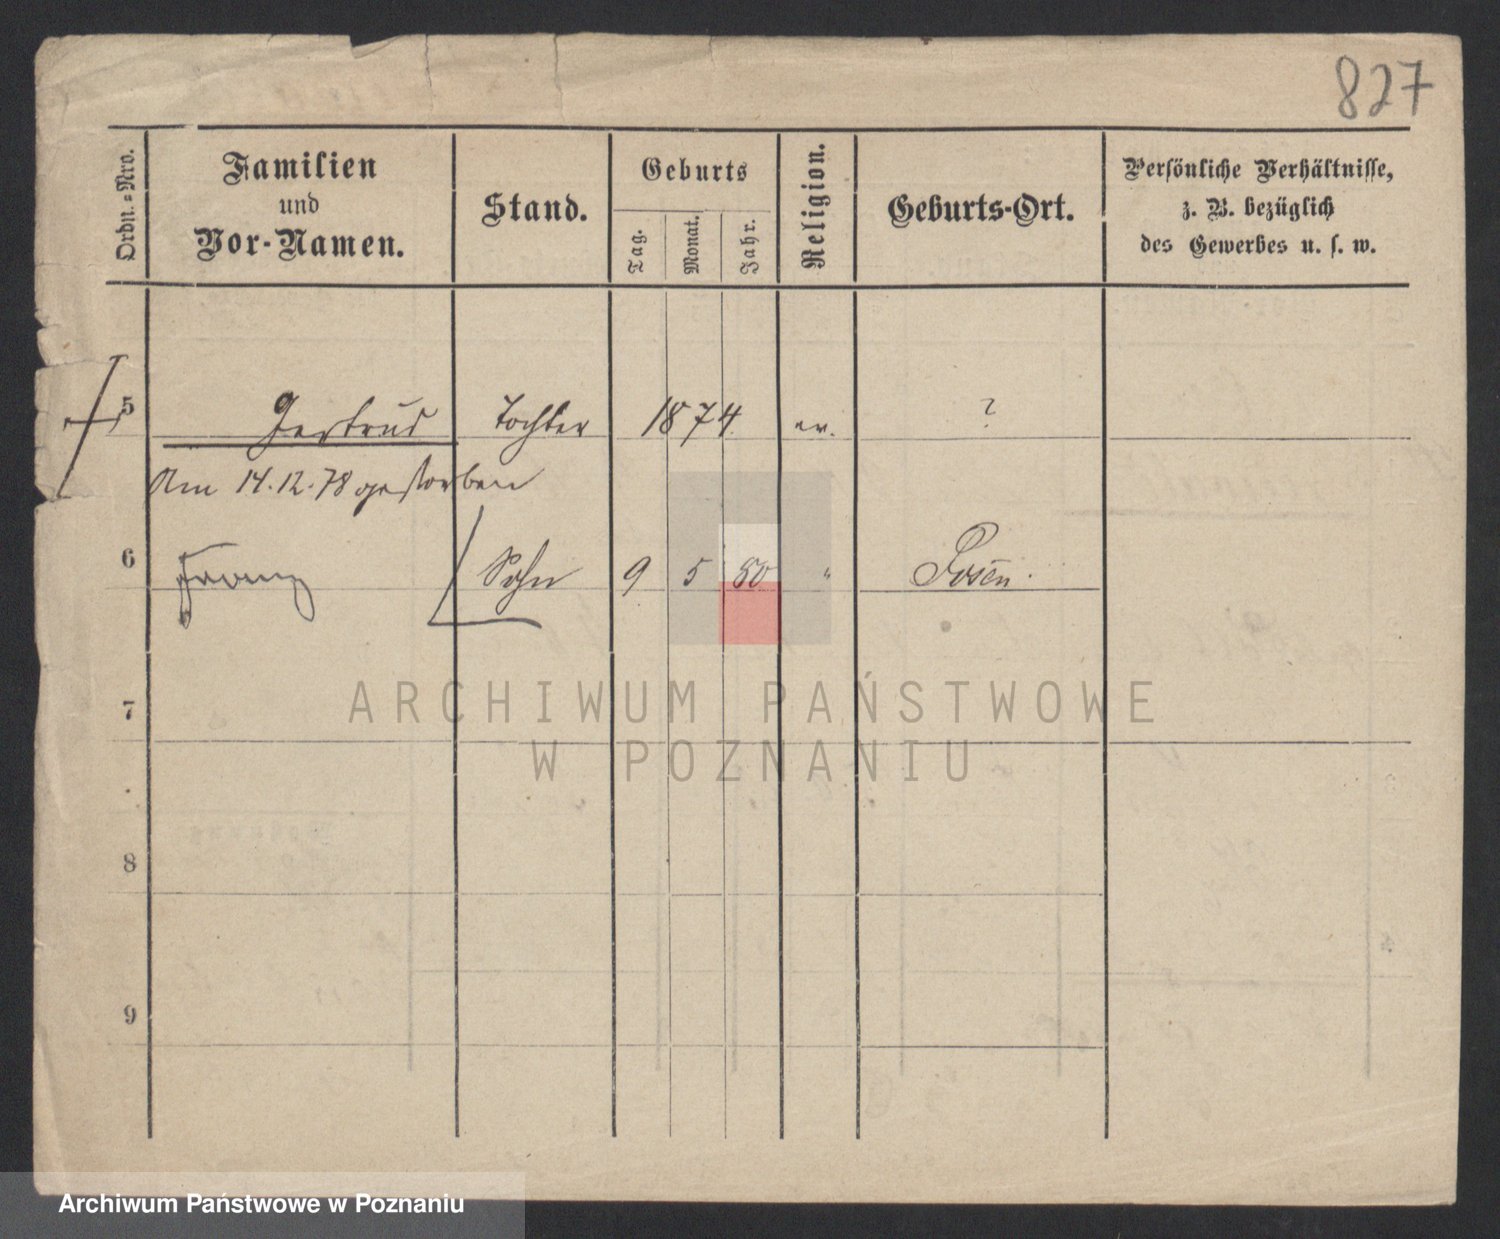 827
Ordn.=Nro.
Familien
und
Vor-Namen.
Stand.
Geburts
Tag.
Monat.
Jahr.
Religion.
Geburts-Ort.
Persönliche Verhältnisse,
z. B. bezüglich
des Gewerbes u. s. w.
5 Gertrud Tochter 1874. ev. ?
Am 14.12.78 gestorben
6 Franz Sohn 9 5 80 " Posen.
7
ARCHIWUM PAŃSTWOWE
W POZNANIU
8
9
Archiwum Państwowe w Poznaniu